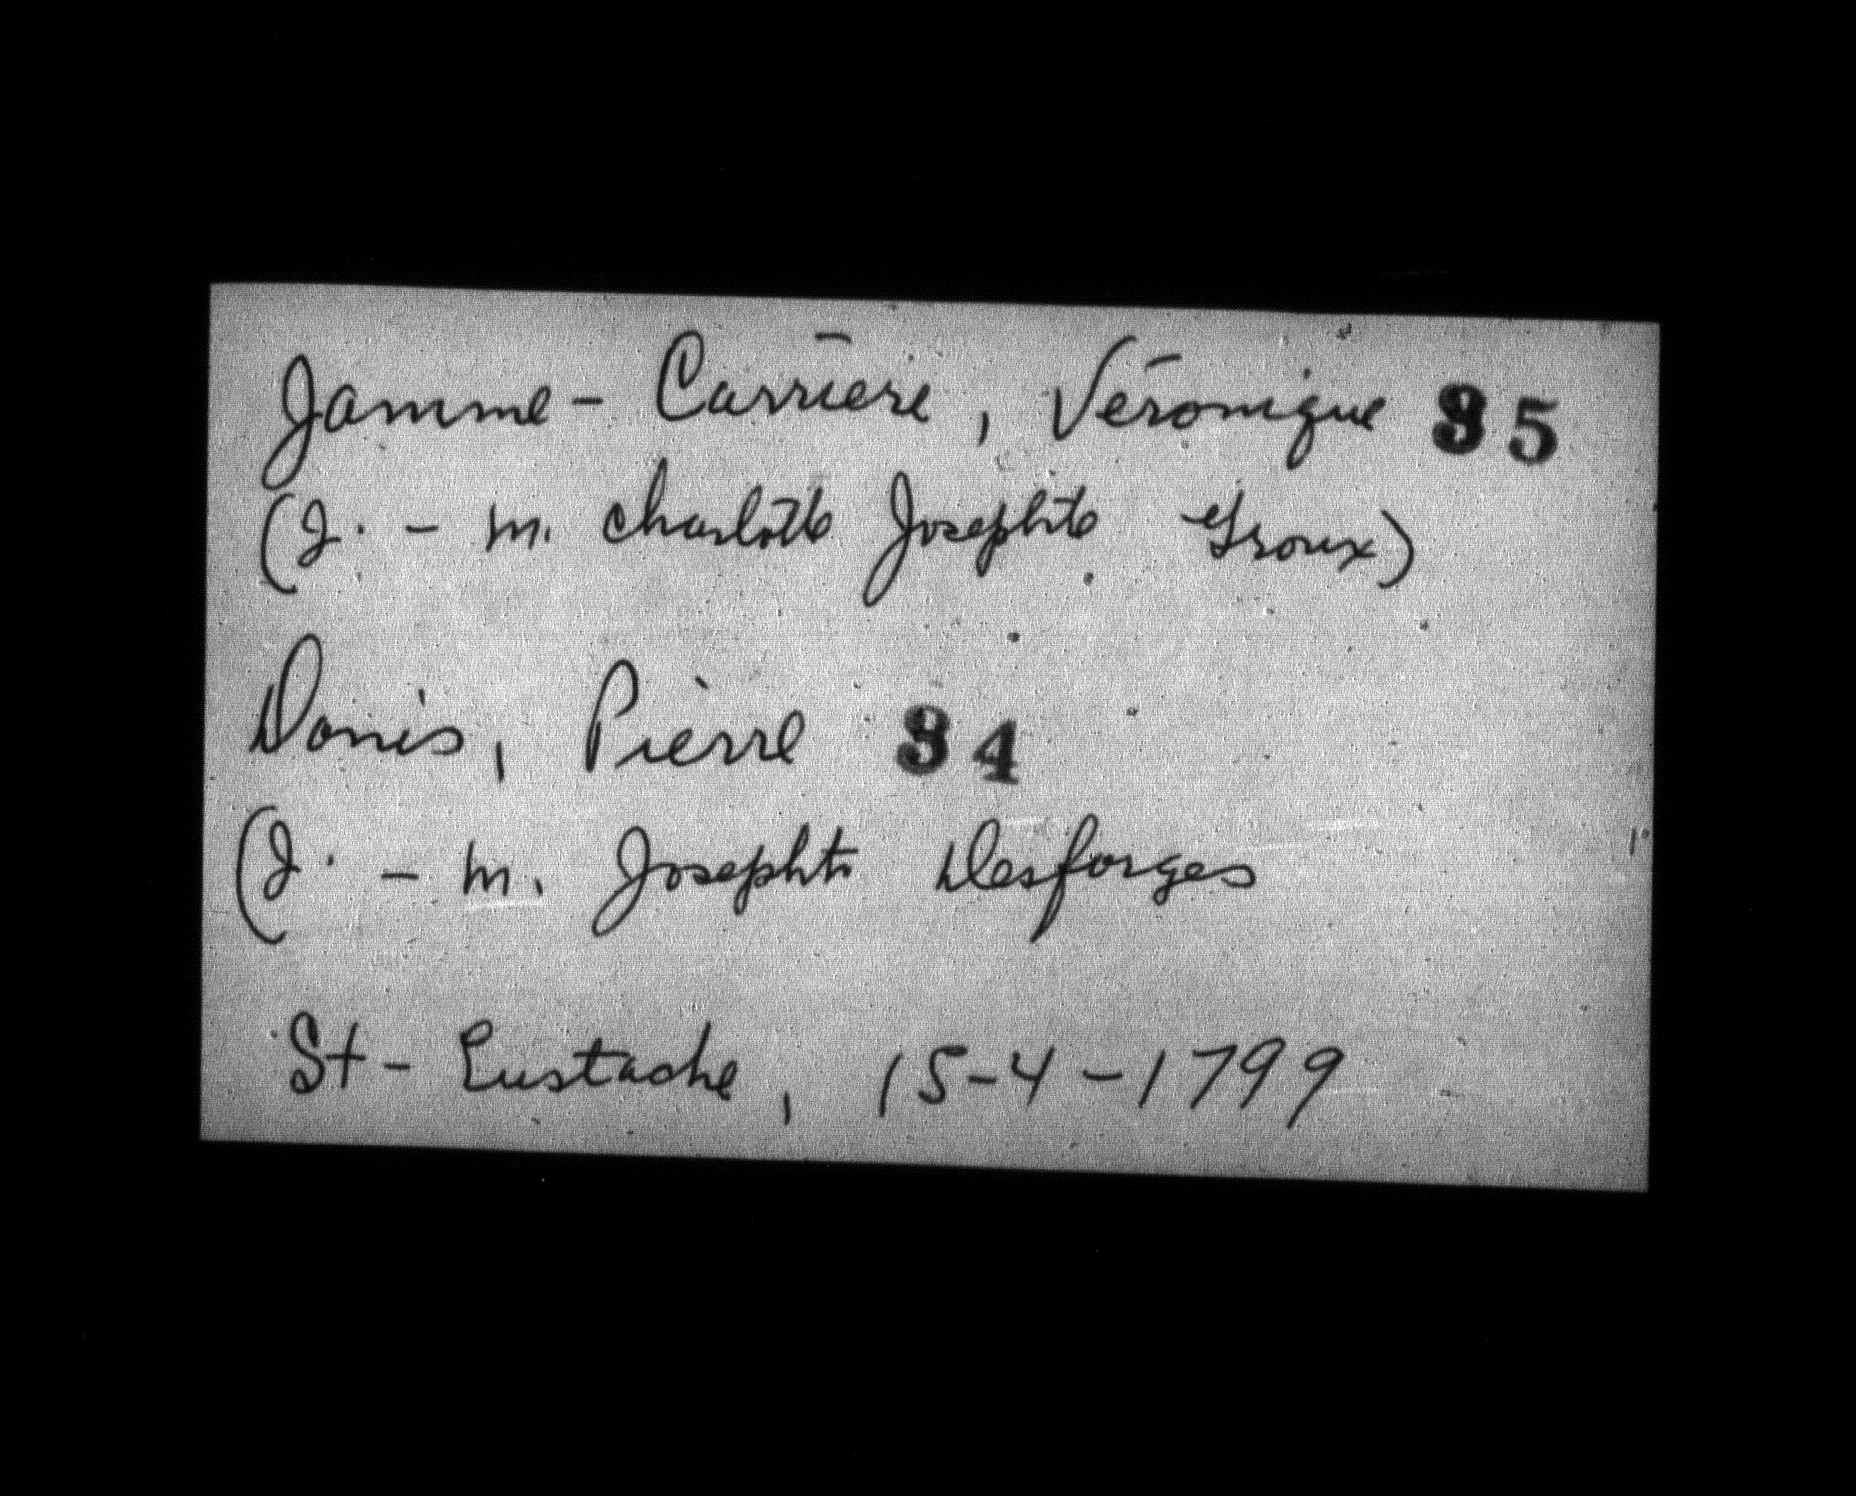 Jamme - Carrière, Véronique 35
(J. - m. Charlotte Josephte Groux)
Donis, Pierre 34
(J. - m. Josephte Desforges
St - Eustache, 15-4-1799